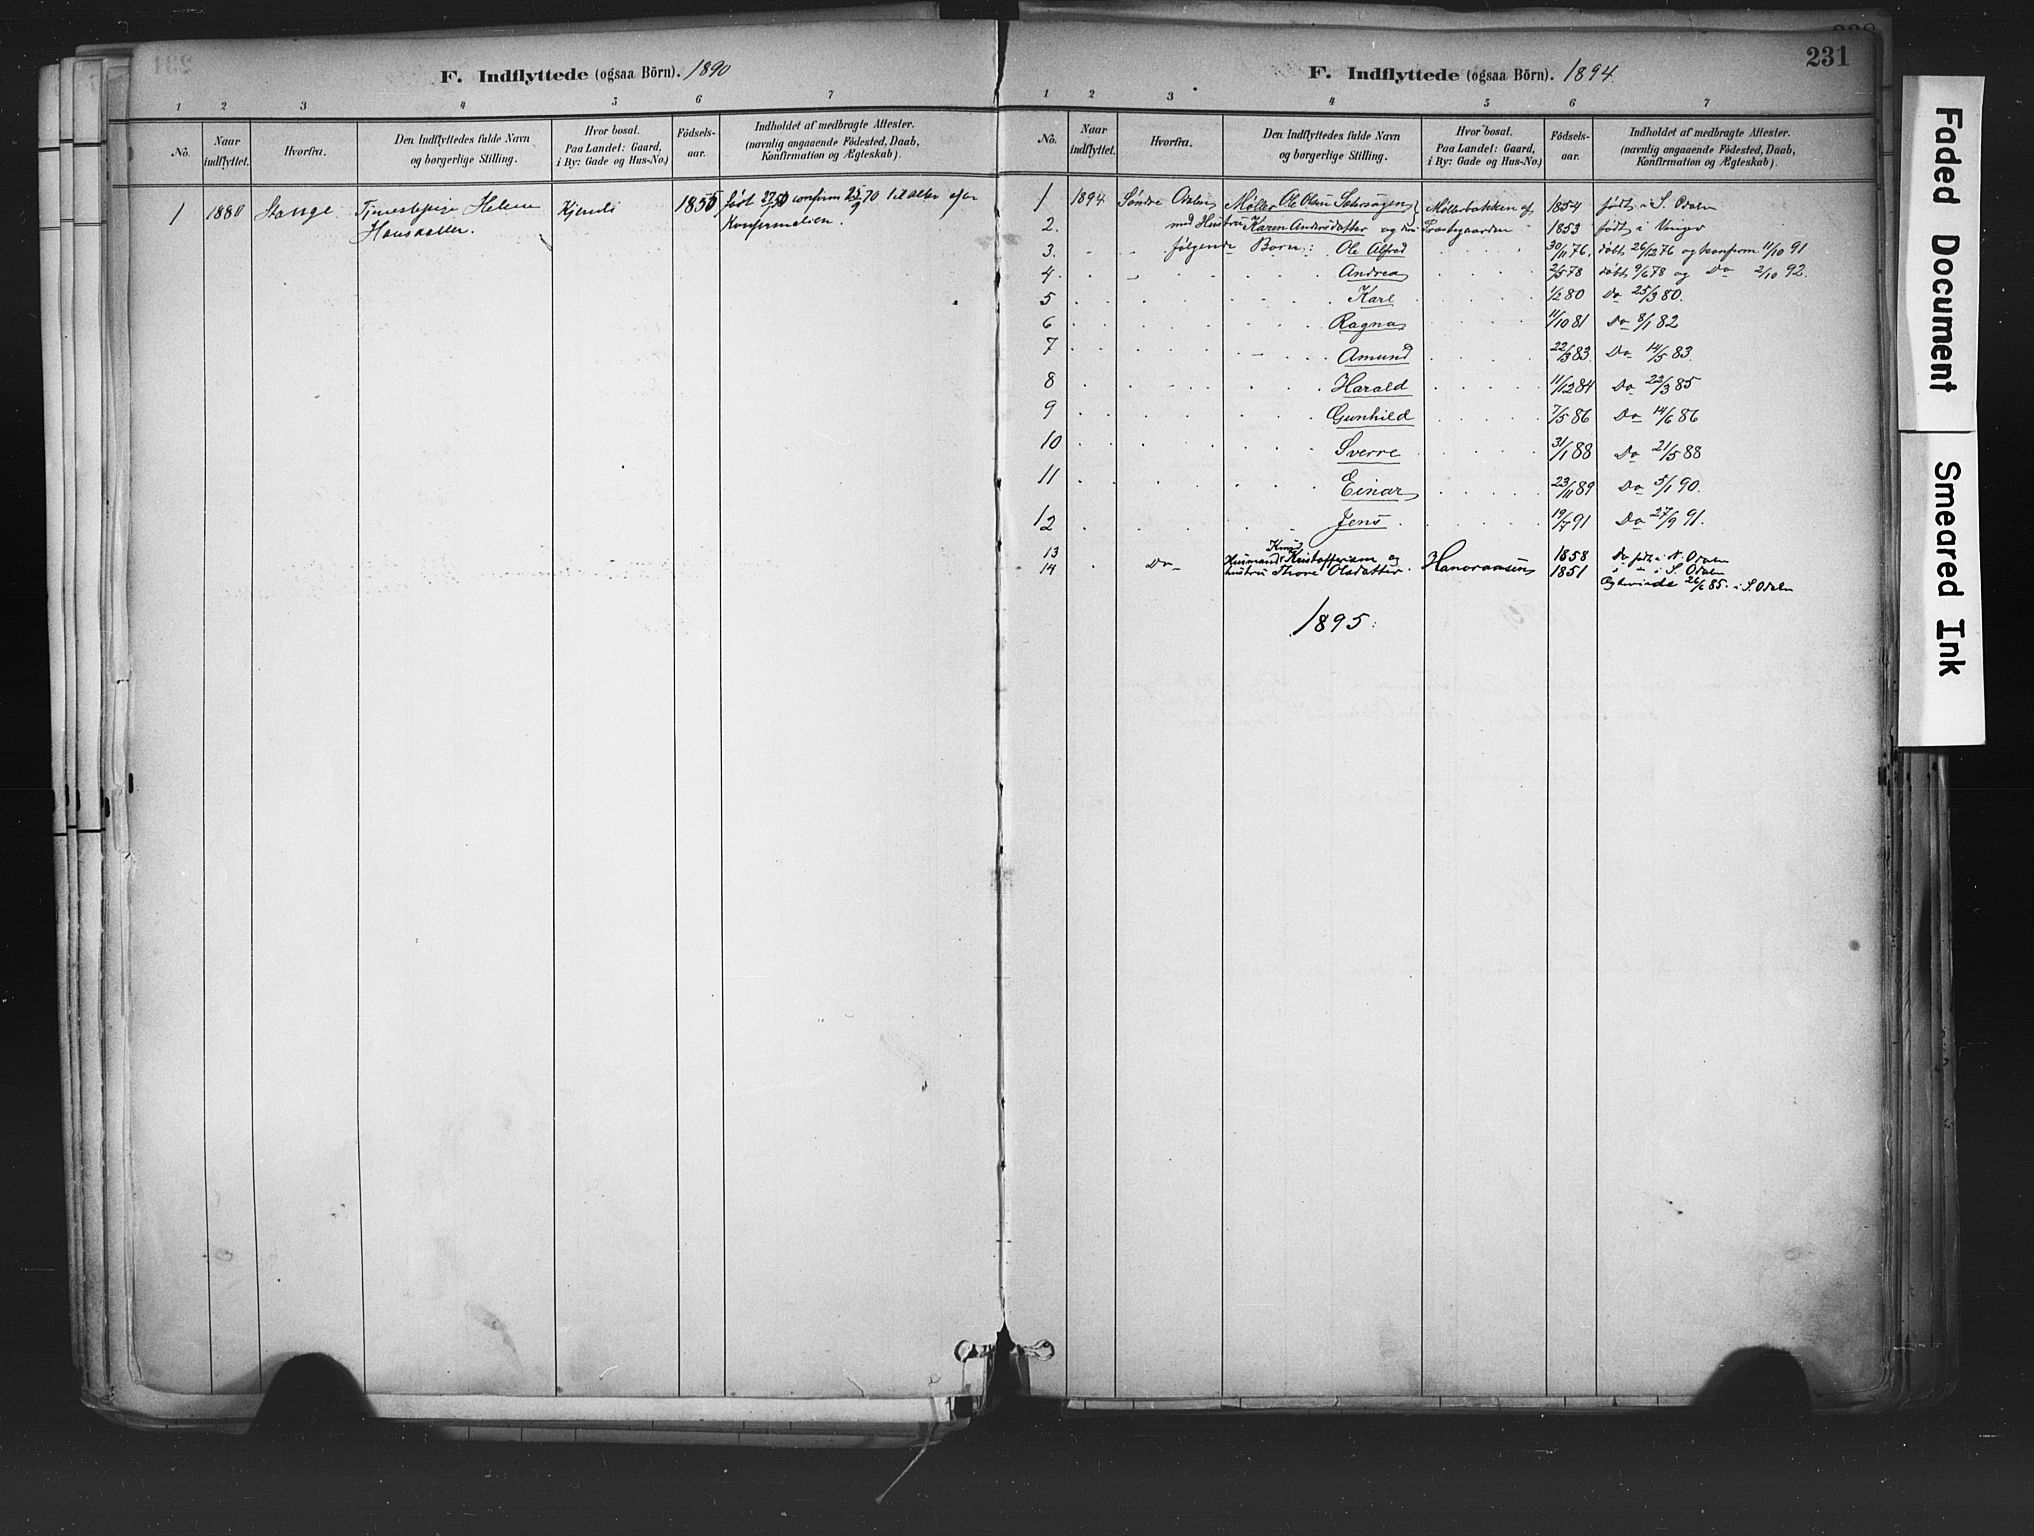 F. Indflyttede (ogsaa Börn). 1890
1 2 3 4 5 6 7
No.
Naar indflyttet.
Hvorfra.
Den Indflyttedes fulde Navn og borgerlige Stilling.
Hvor bosat. Paa Landet: Gaard, i By: Gade og Hus-No.)
Födsels-aar.
Indholdet af medbragte Attester. (navnlig angaaende Födested, Daab, Konfirmation og Ægteskab).
1 1880 Stange Tjenestepige Helene 1855 født confirm 70
Hansdatter. Konfirmationen.
231
F. Indflyttede (ogsaa Börn). 1894
1 2 3 4 5 6 7
No.
Naar indflyttet.
Hvorfra.
Den Indflyttedes fulde Navn og borgerlige Stilling.
Hvor bosat. Paa Landet: Gaard, i By: Gade og Hus-No.)
Födsels-aar.
Indholdet af medbragte Attester. (navnlig angaaende Födested, Daab, Konfirmation og Ægteskab).
1 1894 Søndre Odalen Møller Ole Olsen Møllerbakken af 1854 født i S. Odalen
2. med Hustru Karen Andersdatter og Præstegaarden 1853 født i Vinger
3. følgende Børn: Ole Alfred 30/11 76. døbt 26/12 76 og konfirm 11/10 91
4 Andrea 2/5 78 døbt 9/6 78 og Do 2/10 92.
5 Karl 1/2 80 Do 25/3 80.
6 Ragna 11/10 81 Do 8/1 82
7 Amund 22/3 83. Do 14/5 83.
8 Harald 11/12 84 Do 22/3 85
9 Gunhild 7/5 86 Do 14/6 86
10 Sverre 31/1 88 Do 21/5 88
11 Einar 23/11 89 Do 5/1 90.
12 Jens 19/7 91 Do 27/9 91.
13 Do Husmand Knud Kristoffersen og 1858 Do født i N. Odalen
14 hustru Thore Olsdatter. 1851 i S. Odalen
26/6 85. i S. Odalen
1895.
Faded Document
Smeared Ink